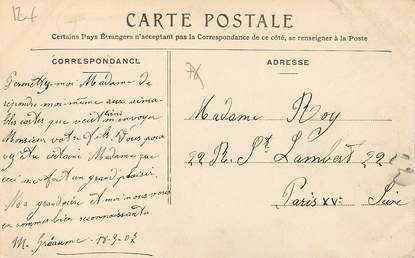 CARTE POSTALE
Certains Pays Étrangers n'acceptant pas la Correspondance de ce côté, se renseigner à la Poste
CORRESPONDANCE
Permettez-moi Madame de
répondre moi-même aux aima-
bles cartes que veut bien envoyer
Monsieur votre fils. Vous pou-
vez être certaine Madame que
ceci me fait un grand plaisir.
Ma grand'mère et moi nous vous
en sommes bien reconnaissantes
M. Gréaume 18-9-07
ADRESSE
Madame Roy
22 R. St Lambert 22
Paris XV. Seine